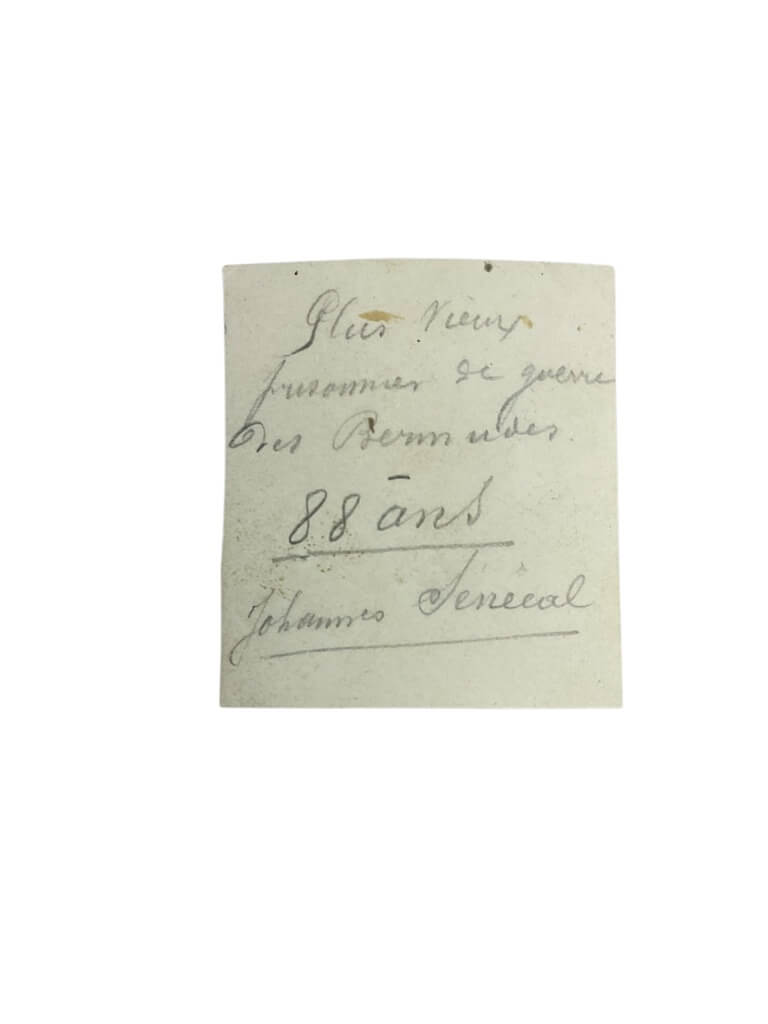 Plus Vieux
prisonnier de guerre
des Bermudes.
88 ans
Johannes Sénécal